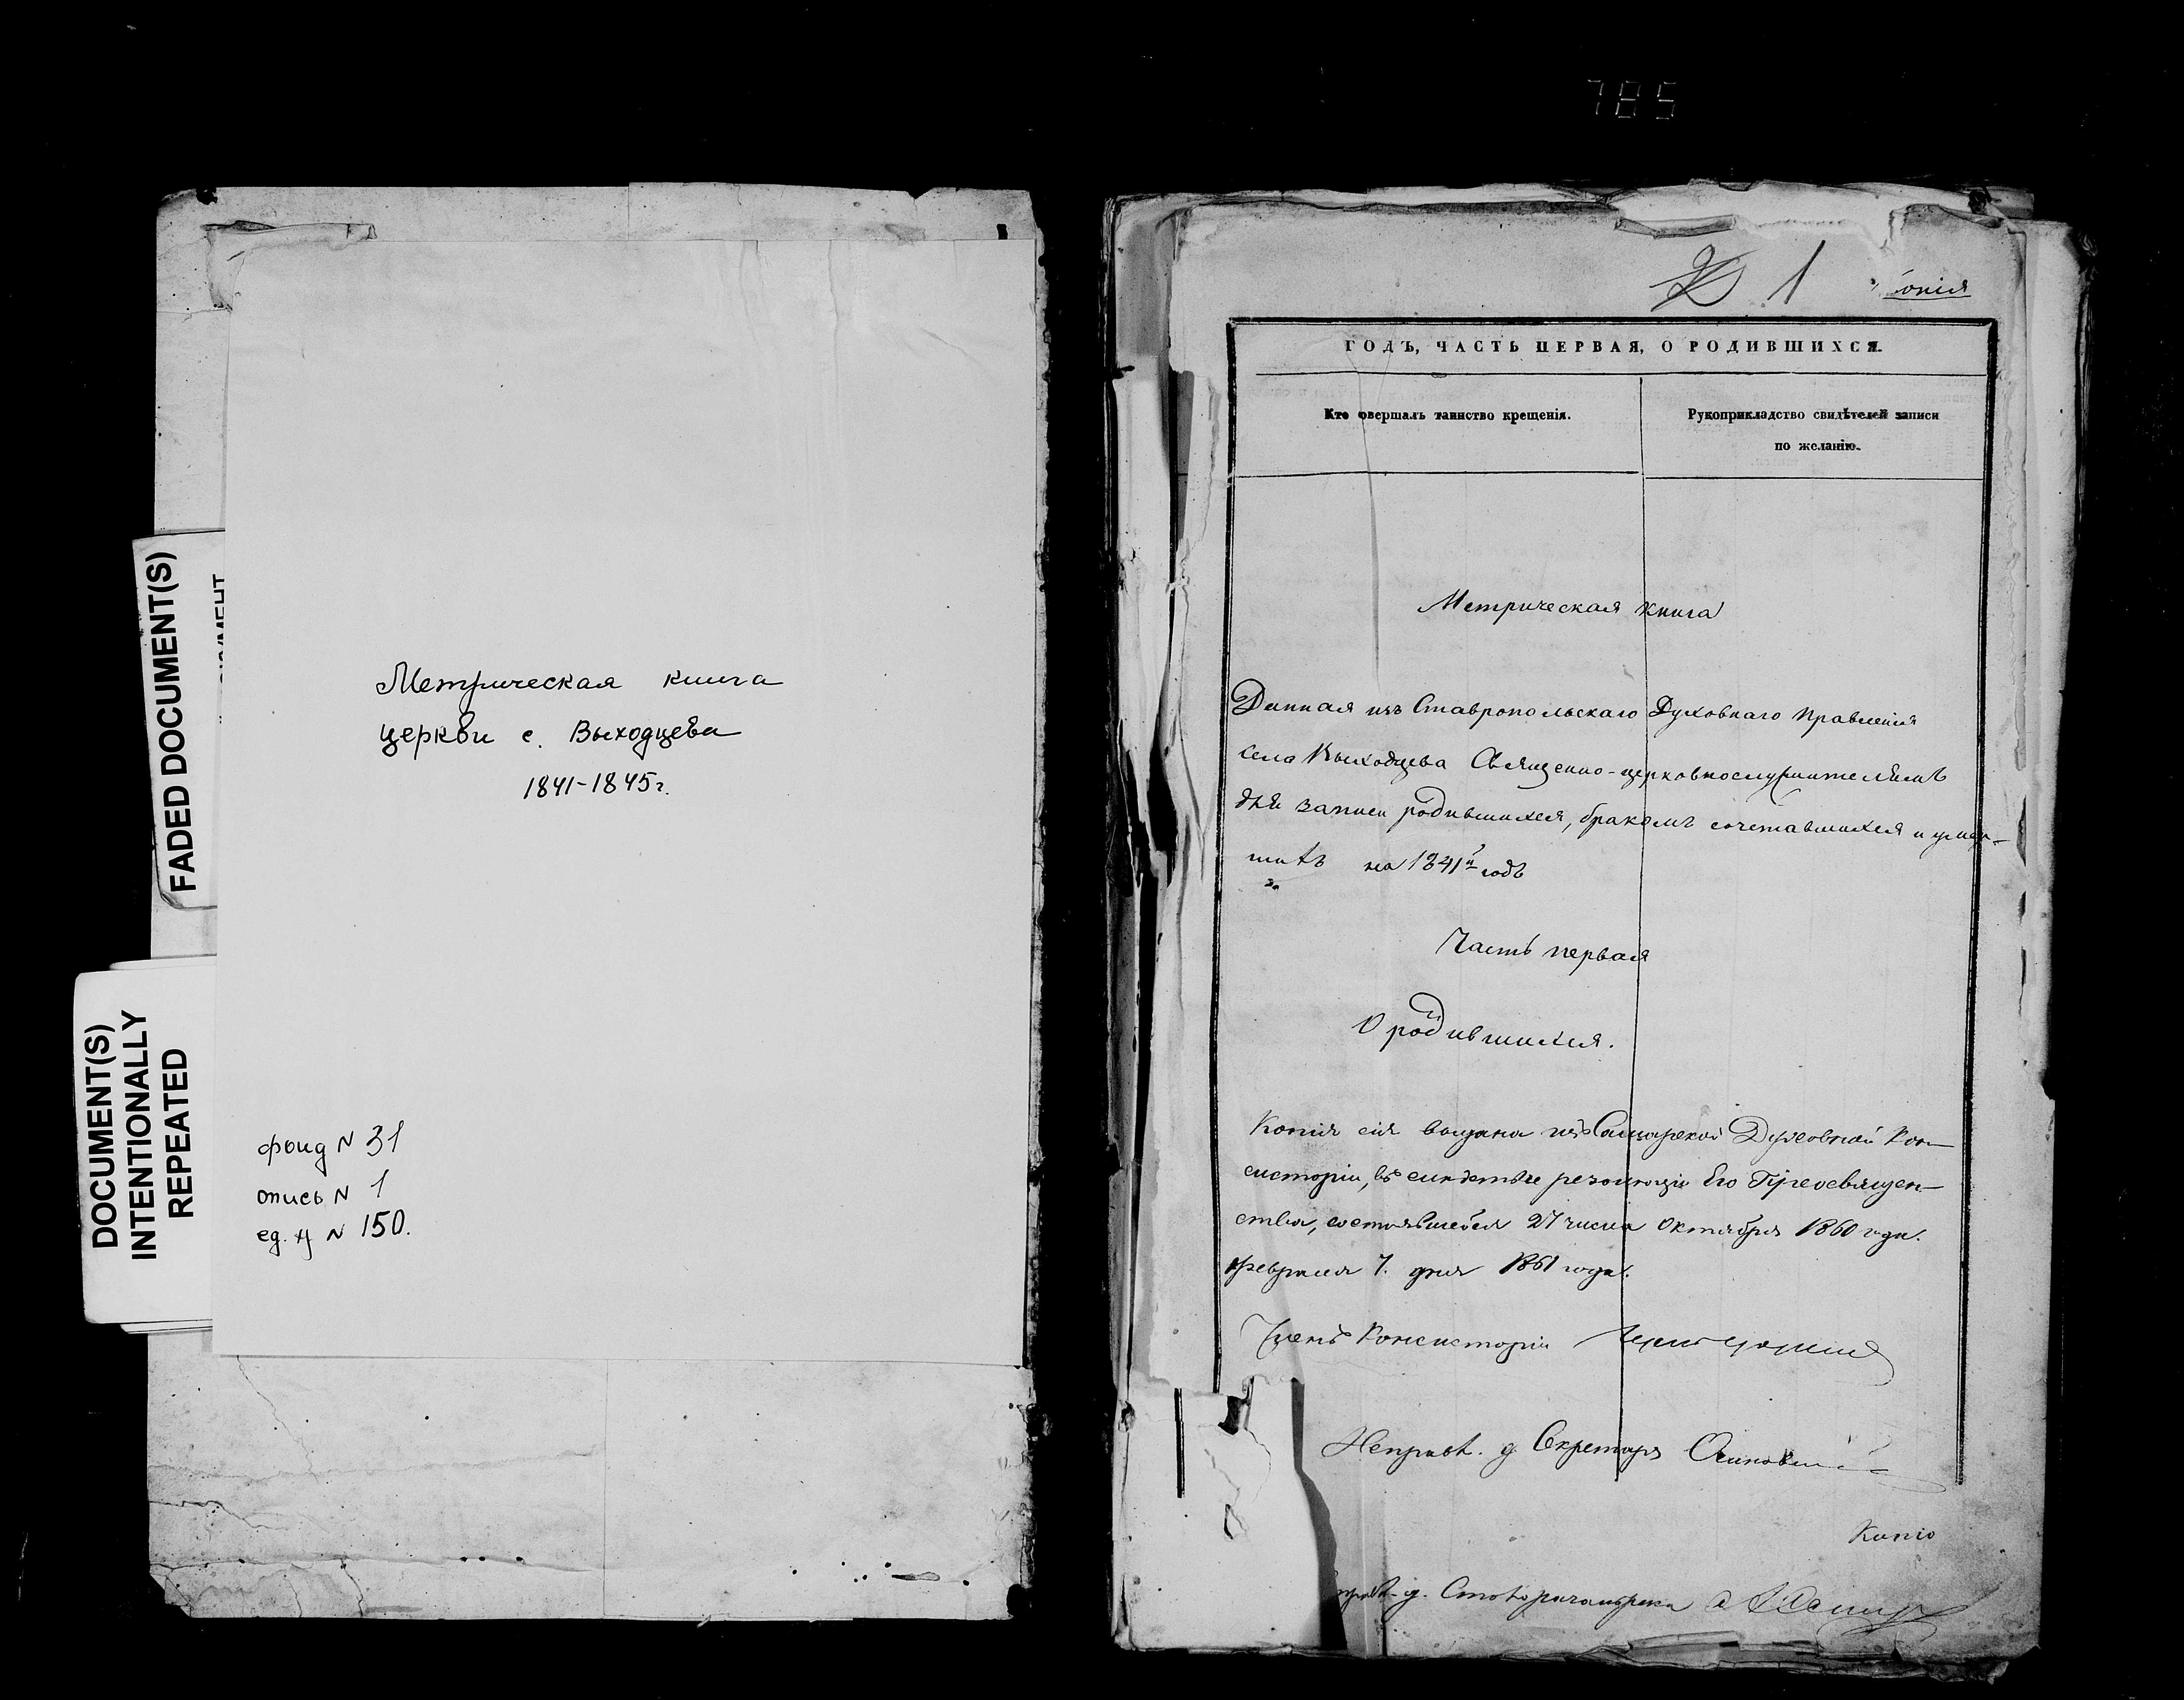 785
FADED DOCUMENT(S)
DOCUMENT(S)
INTENTIONALLY
REPEATED
Метрическая книга
церкви с. Выходцева
1841-1845г.
фонд N 31
опись N 1
ед. х N 150.
1 опія
ГОДЪ, ЧАСТЬ ПЕРВАЯ, О РОДИВШИХСЯ.
Кто овершалъ таинство крещенія.
Рукоприкладство свидѣтелей записи
по желанію.
Метрическая книга
Данная изъ Ставропольскаго Духовнаго Правленія
села Выходцева Священно-церковнослужителямъ
для записи родившихся, бракомъ сочетавшихся и умер-
шихъ на 1841й годъ
Часть первая
О родившихся.
Копія сія выдана изъ Самарской Духовной Кон-
систоріи, въ слѣдствіе резолюціи Его Преосвящен-
ства, состоявшейся 27 числа Октября 1860 года.
Февраля 7. дня 1861 года.
Членъ Консисторіи
Исправ. д. Секретаря
Копію
д. Столоначальника